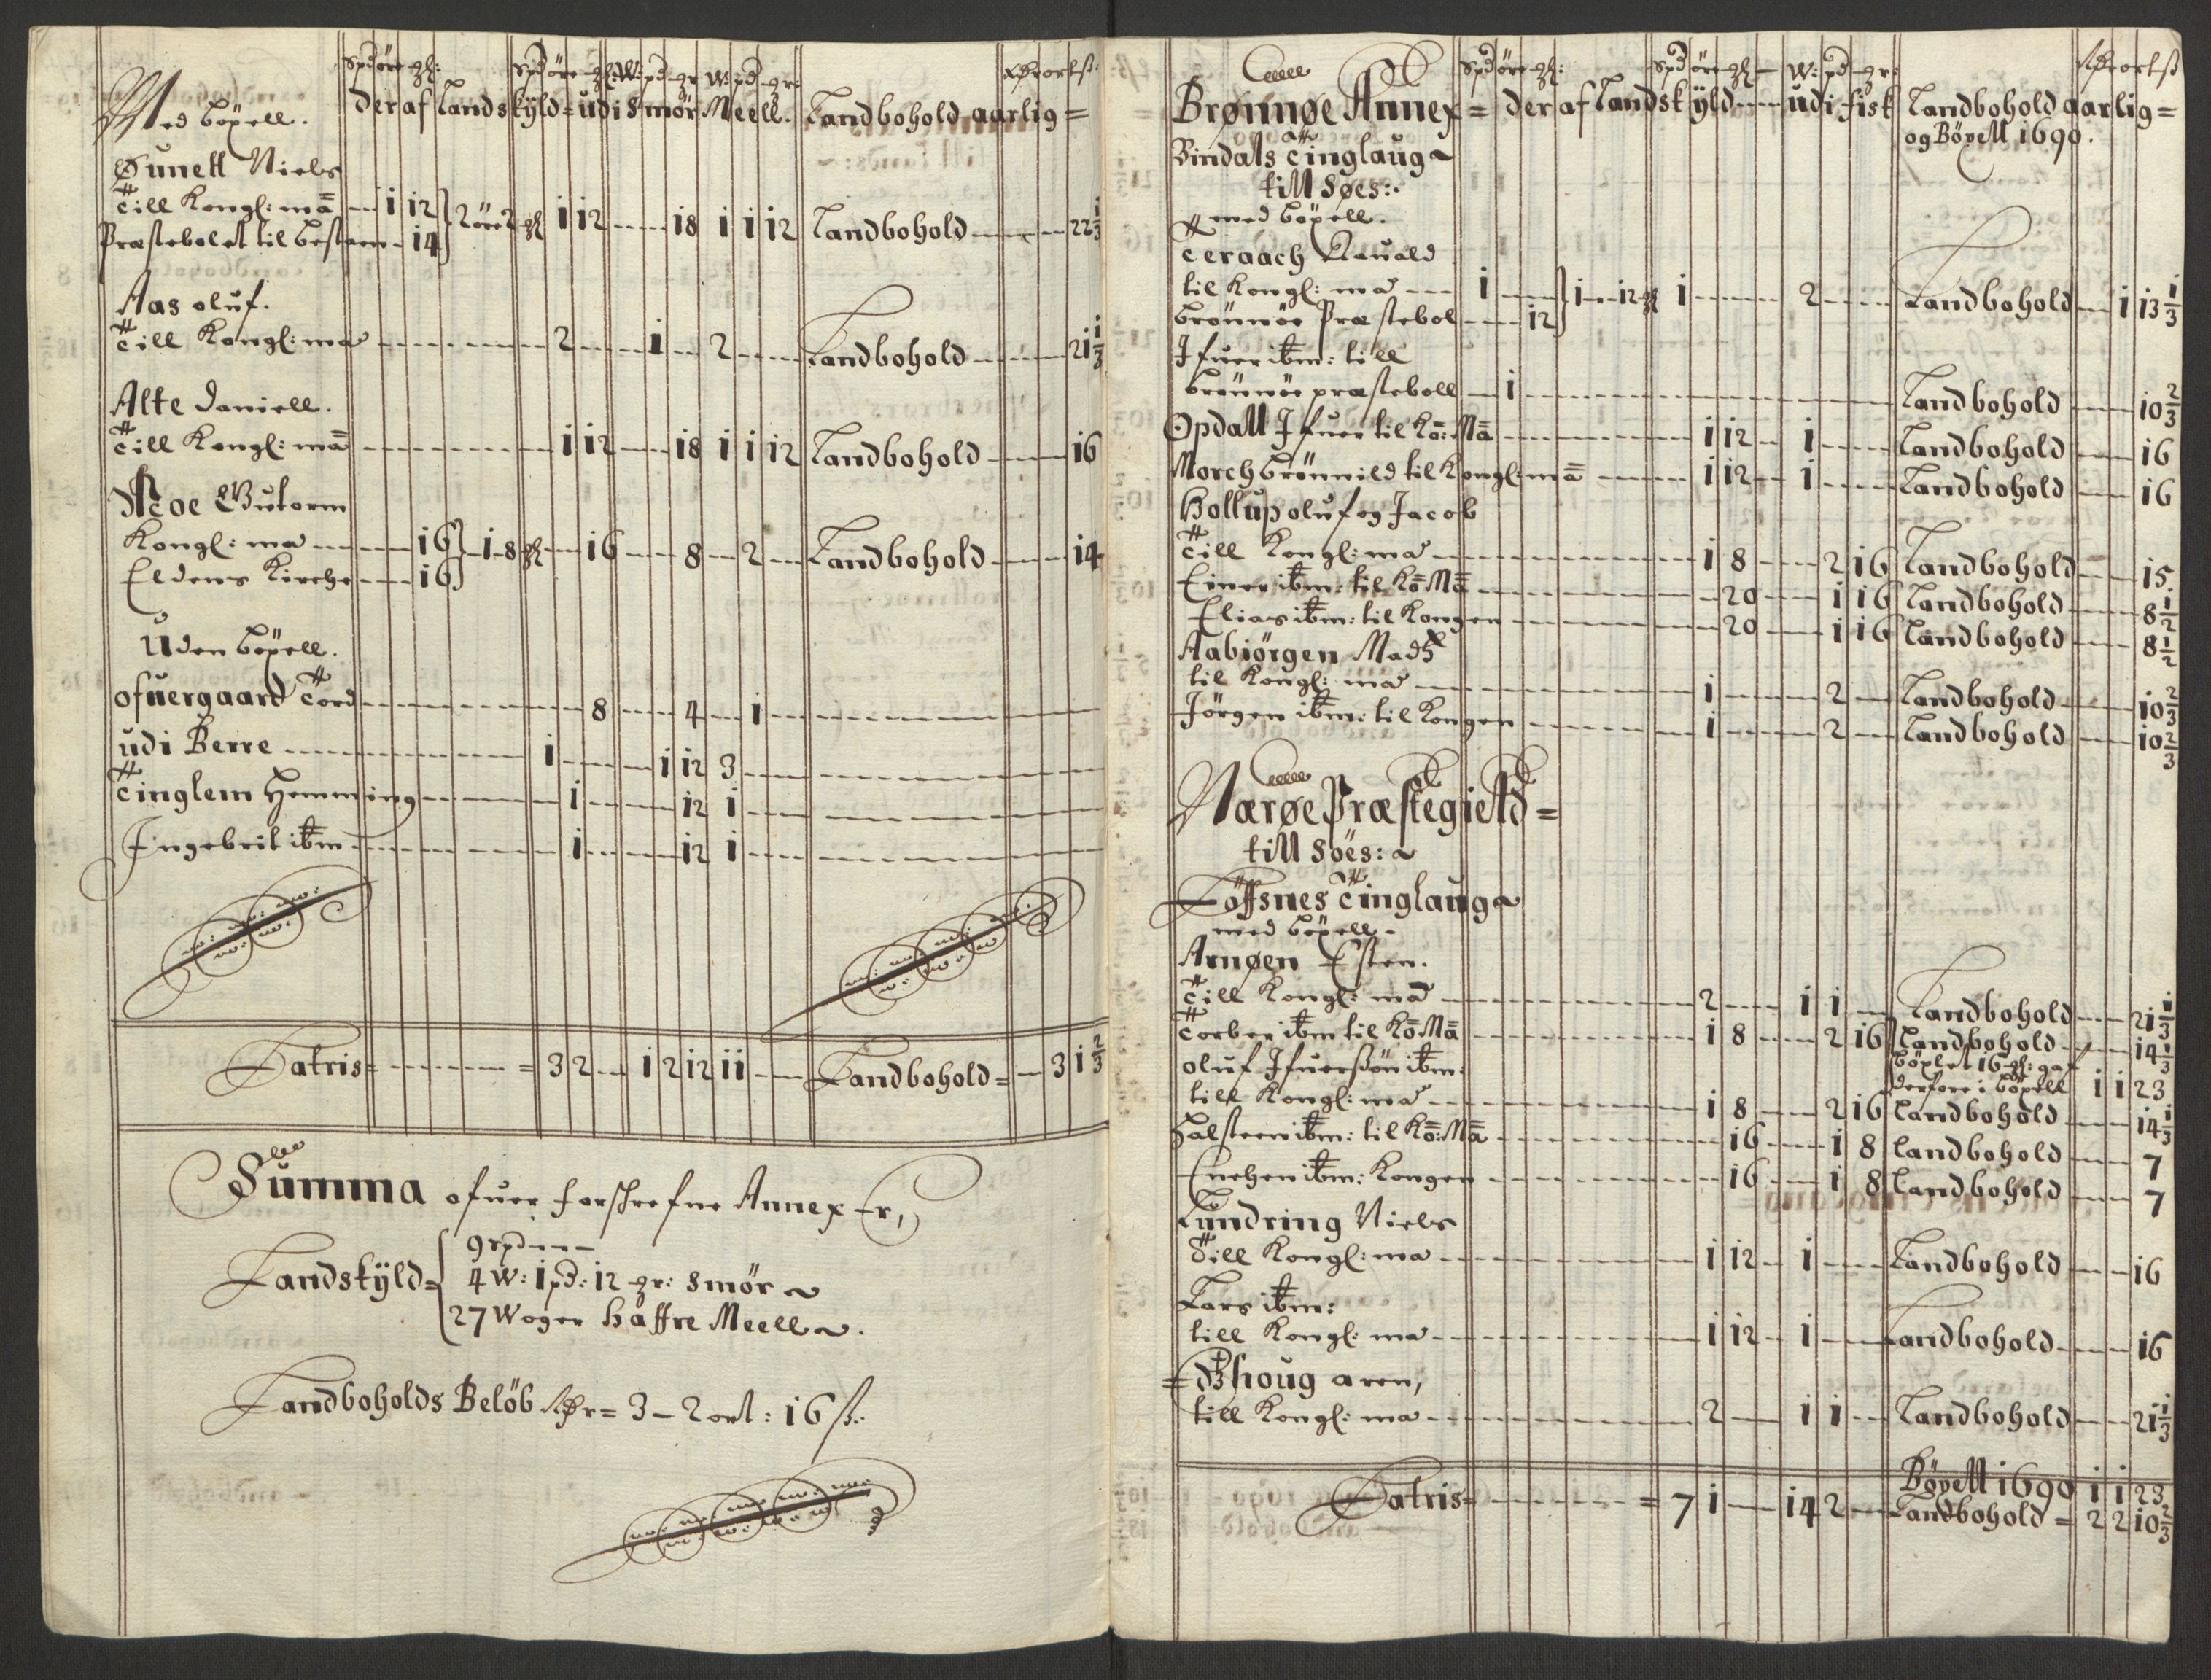 spd øre gl: spd øre gl: W: pd gr W: pd gr: Rdr ort ß:
Med böxell. der af Landskÿld = udi Smør Meell. Landbohold aarlig =
Sunett Niels
Till Kongl: ma — 1 12 } 2 öre 2 gl 1 12 — 18 1 1 12 Landbohold — 22 1/3
Præstebolet til bestaen — 14
Aas oluf.
Till Kongl: ma — 2 — 1 — 2 — Landbohold — 21 1/3
Alte Daniell.
Till Kongl: ma — 1 12 — 18 1 1 12 Landbohold — 16
Moe Gutorm
Kongl: ma — 16 } 1 – 8 gl — 16 — 8 — 2 — Landbohold — 14
Eldens Kirche — 16
Uden böxell.
ofuergaard Tord — 8 — 4 — 1 —
udi Berre — 1 — 1 12 3 —
Tinglem Hemming — 1 — 12 1 —
Ingebrit ibm — 1 — 12 1 —
Latris = — = 3 2 — 1 2 12 11 — Landbohold = — 3 1 2/3
Summa ofuer forschrefne Annex – er,
Landskÿld = 9 spd – – –
4 W: 1 pd: 12 gr: smör
27 Woger Haffre Meell.
Landboholds Belöb Rdr = 3 – 2 ort: 16 ß:
spd øre gl: spd öre gl — W: pd gr: Rdr ort ß
Brønnøe Annex = der af Landskÿld — udi fisk Landbohold aarlig =
og Böxell 1690.
Bindals Tinglaug
till Søes:
med böxell.
Teraach Nauald
til Kongl: ma — 1 — } 1 – 12 gl 1 — 2 — Landbohold — 1 13 1/3
brönnöe Præstebol — 12
Ifuer ibm: till
brönnöe præsteboll — 1 — Landbohold — 10 2/3
Opdall Ifuer til Ko: Ma — 1 12 — 1 — Landbohold — 16
Morch brönnild til Kongl: ma — 1 12 — 1 — Landbohold — 16
Hollup oluf og Jacob
Till Kongl: ma — 1 8 — 2 16 Landbohold — 15
Einer ibm: til Ko Ma — 20 — 1 16 Landbohold — 8 1/2
Elias ibm: til Kongen — 20 — 1 16 Landbohold — 8 1/2
Aabiörgen Madß
til Kongl: ma — 1 — 2 — Landbohold — 10 2/3
Jörgen ibm: til Kongen — 1 — 2 — Landbohold — 10 2/3
Narøe Præstegield =
till Söes:
Föffsnes Tinglaug
med böxell –
Arnøen Esten.
Till Kongl: ma — 2 — 1 1 — Landbohold — 21 1/3
Torber ibm til Ko Ma — 1 8 — 2 16 Landbohold — 14 1/3
oluf Ifuerßön ibm: böxlet 16 gl: gaf
derfore i böxell 1 1 23
till Kongl: ma — 1 8 — 2 16 Landbohold — 14 1/3
Halsteen ibm: til Ko: Ma — 16 — 1 8 Landbohold — 7
Enehen ibm: Kongen — 16 — 1 8 Landbohold — 7
Lundring Niels
Till Kongl: ma — 1 12 — 1 — Landbohold — 16
Lars ibm:
till Kongl: ma — 1 12 — 1 — Landbohold — 16
houg aren,
till Kongl: ma — 2 — 1 1 — Landbohold — 21 1/3
Böxell 1690 1 1 23
Latris = — = 7 1 — 14 2 — Landbohold = 2 2 10 2/3